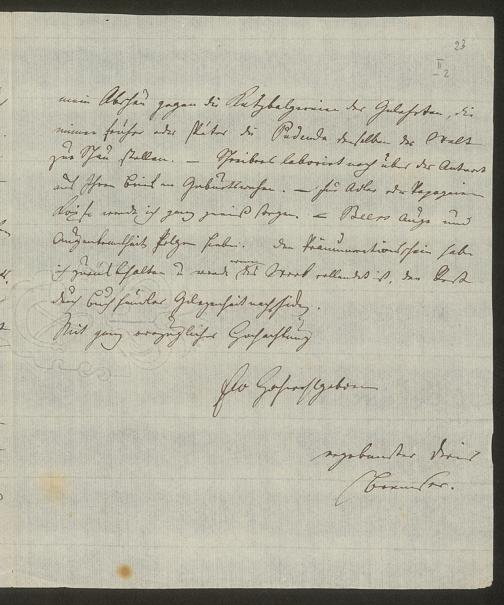 23
II
2
mein Abscheu gegen die Katzbalgereien der Gelehrten, die
immer früher oder später die Pudenda derselben der Welt
zur Schau stellen. — Schreibers laborirt noch über der Antwort
auf Ihren Brief an Geburtswehen. — Für Adler oder Papageien
Köpfe werde ich ganz gewiß sorgen. — Beers Auge und
Augenkrankheit folgen hiebei. Den Pränumerationsschein habe
ich zurück behalten u werde wenn das Werk vollendet ist, den Rest
durch Buchhändler Gelegenheit nachsenden.
Mit ganz vorzüglicher Hochachtung
Ew Hochwohlgeboren
ergebenster Diener
Bremser.